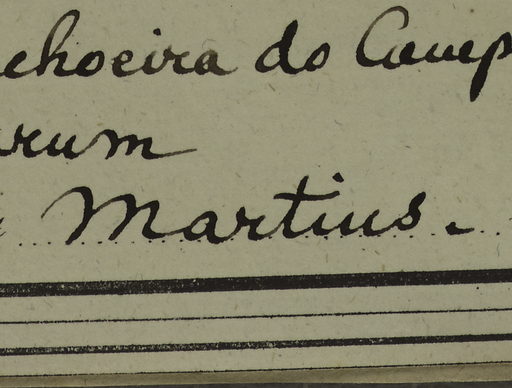 choeira do Camp
arum
Martius.